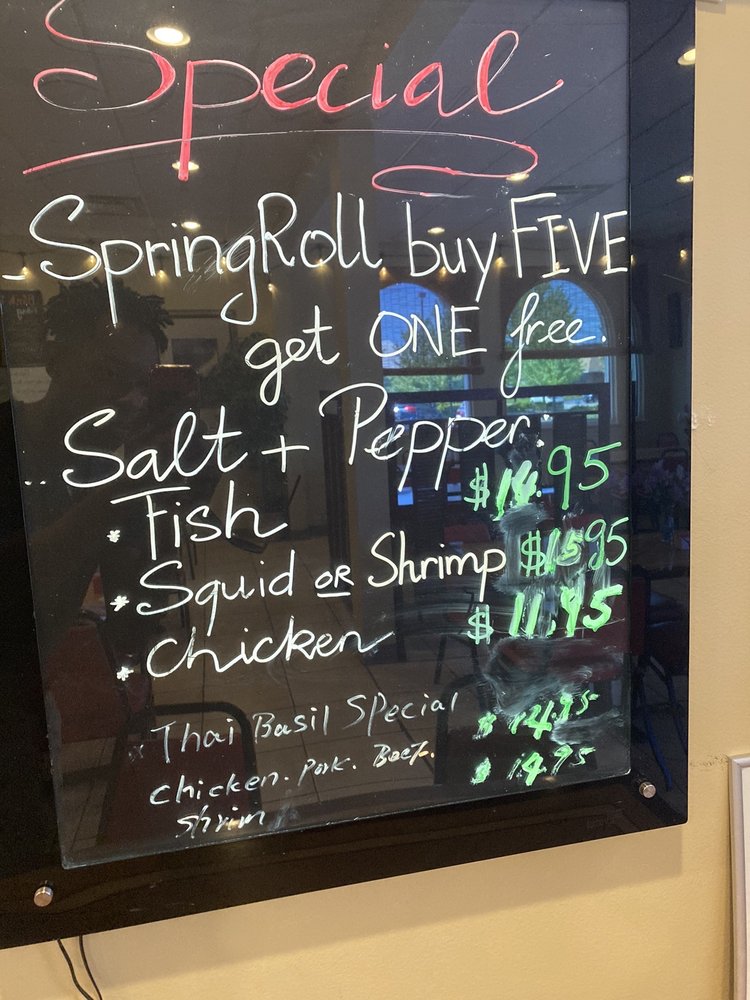 Special
Spring Roll buy FIVE
get ONE free.
Salt + Pepper.
* Fish $14.95
* Squid OR Shrimp $15.95
* Chicken $11.95
* Thai Basil Special
chicken. Pork. Beef. $14.95
shrim